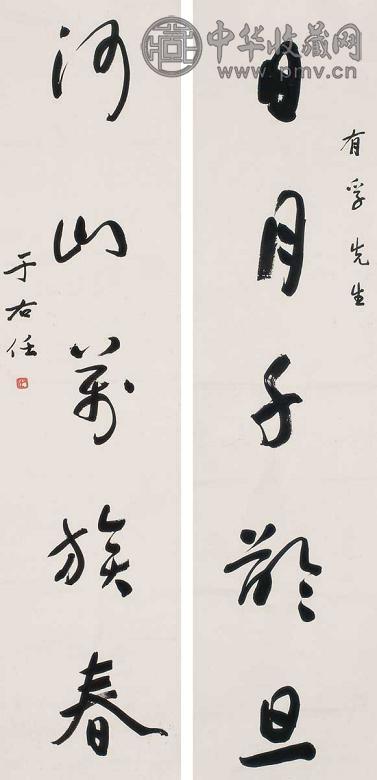 中华收藏网
www.pmv.cn
有孚先生
日月千齡旦
河山萬族春
于右任